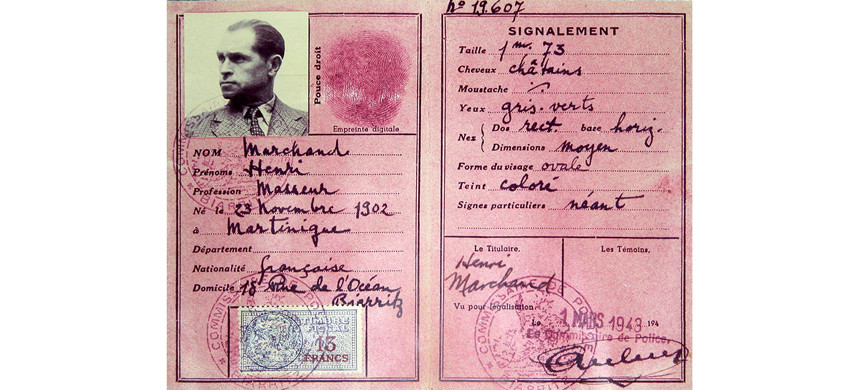 Pouce droit
Empreinte digitale
NOM Marchand
Prénoms Henri
Profession Masseur
Né le 23 Novembre 1902
à Martinique
Département
Nationalité française
Domicile 18 Rue de l'Océan
Biarritz
TIMBRE FISCAL
13
FRANCS
COMMISSARIAT DE PO
BIARRITZ
n° 19.607
SIGNALEMENT
Taille 1 m. 73
Cheveux châtains
Moustache
Yeux gris-verts
Nez Dos rect. base horiz.
Dimensions moyen
Forme du visage ovale
Teint coloré
Signes particuliers néant
Le Titulaire, Les Témoins,
Henri
Marchand
Vu pour légalisation:
Le 1 MARS 1943 194
Le Commissaire de Police,
BIARRITZ